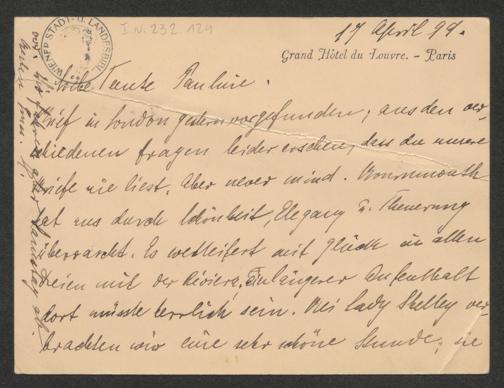 I.N. 232.124
WIENER STADT- U. LANDESBIBL.
17 April 99.
Grand Hôtel du Louvre. - Paris
Liebe Tante Pauline.
Brief in London gestern vorgefunden; aus den ver-
schiedenen fragen leider ersehen, dass du unsere
Briefe nie liest. Aber never mind. Bournemouth
hat uns durch Schönheit, Eleganz u. Theuerung
überrascht. Es wetteifert mit Glück in allen
dreien mit der Riviera. Ein längerer Aufenthalt
dort müsste herrlich sein. Bei Lady Shelley ver-
brachten wir eine sehr schöne Stunde; sie